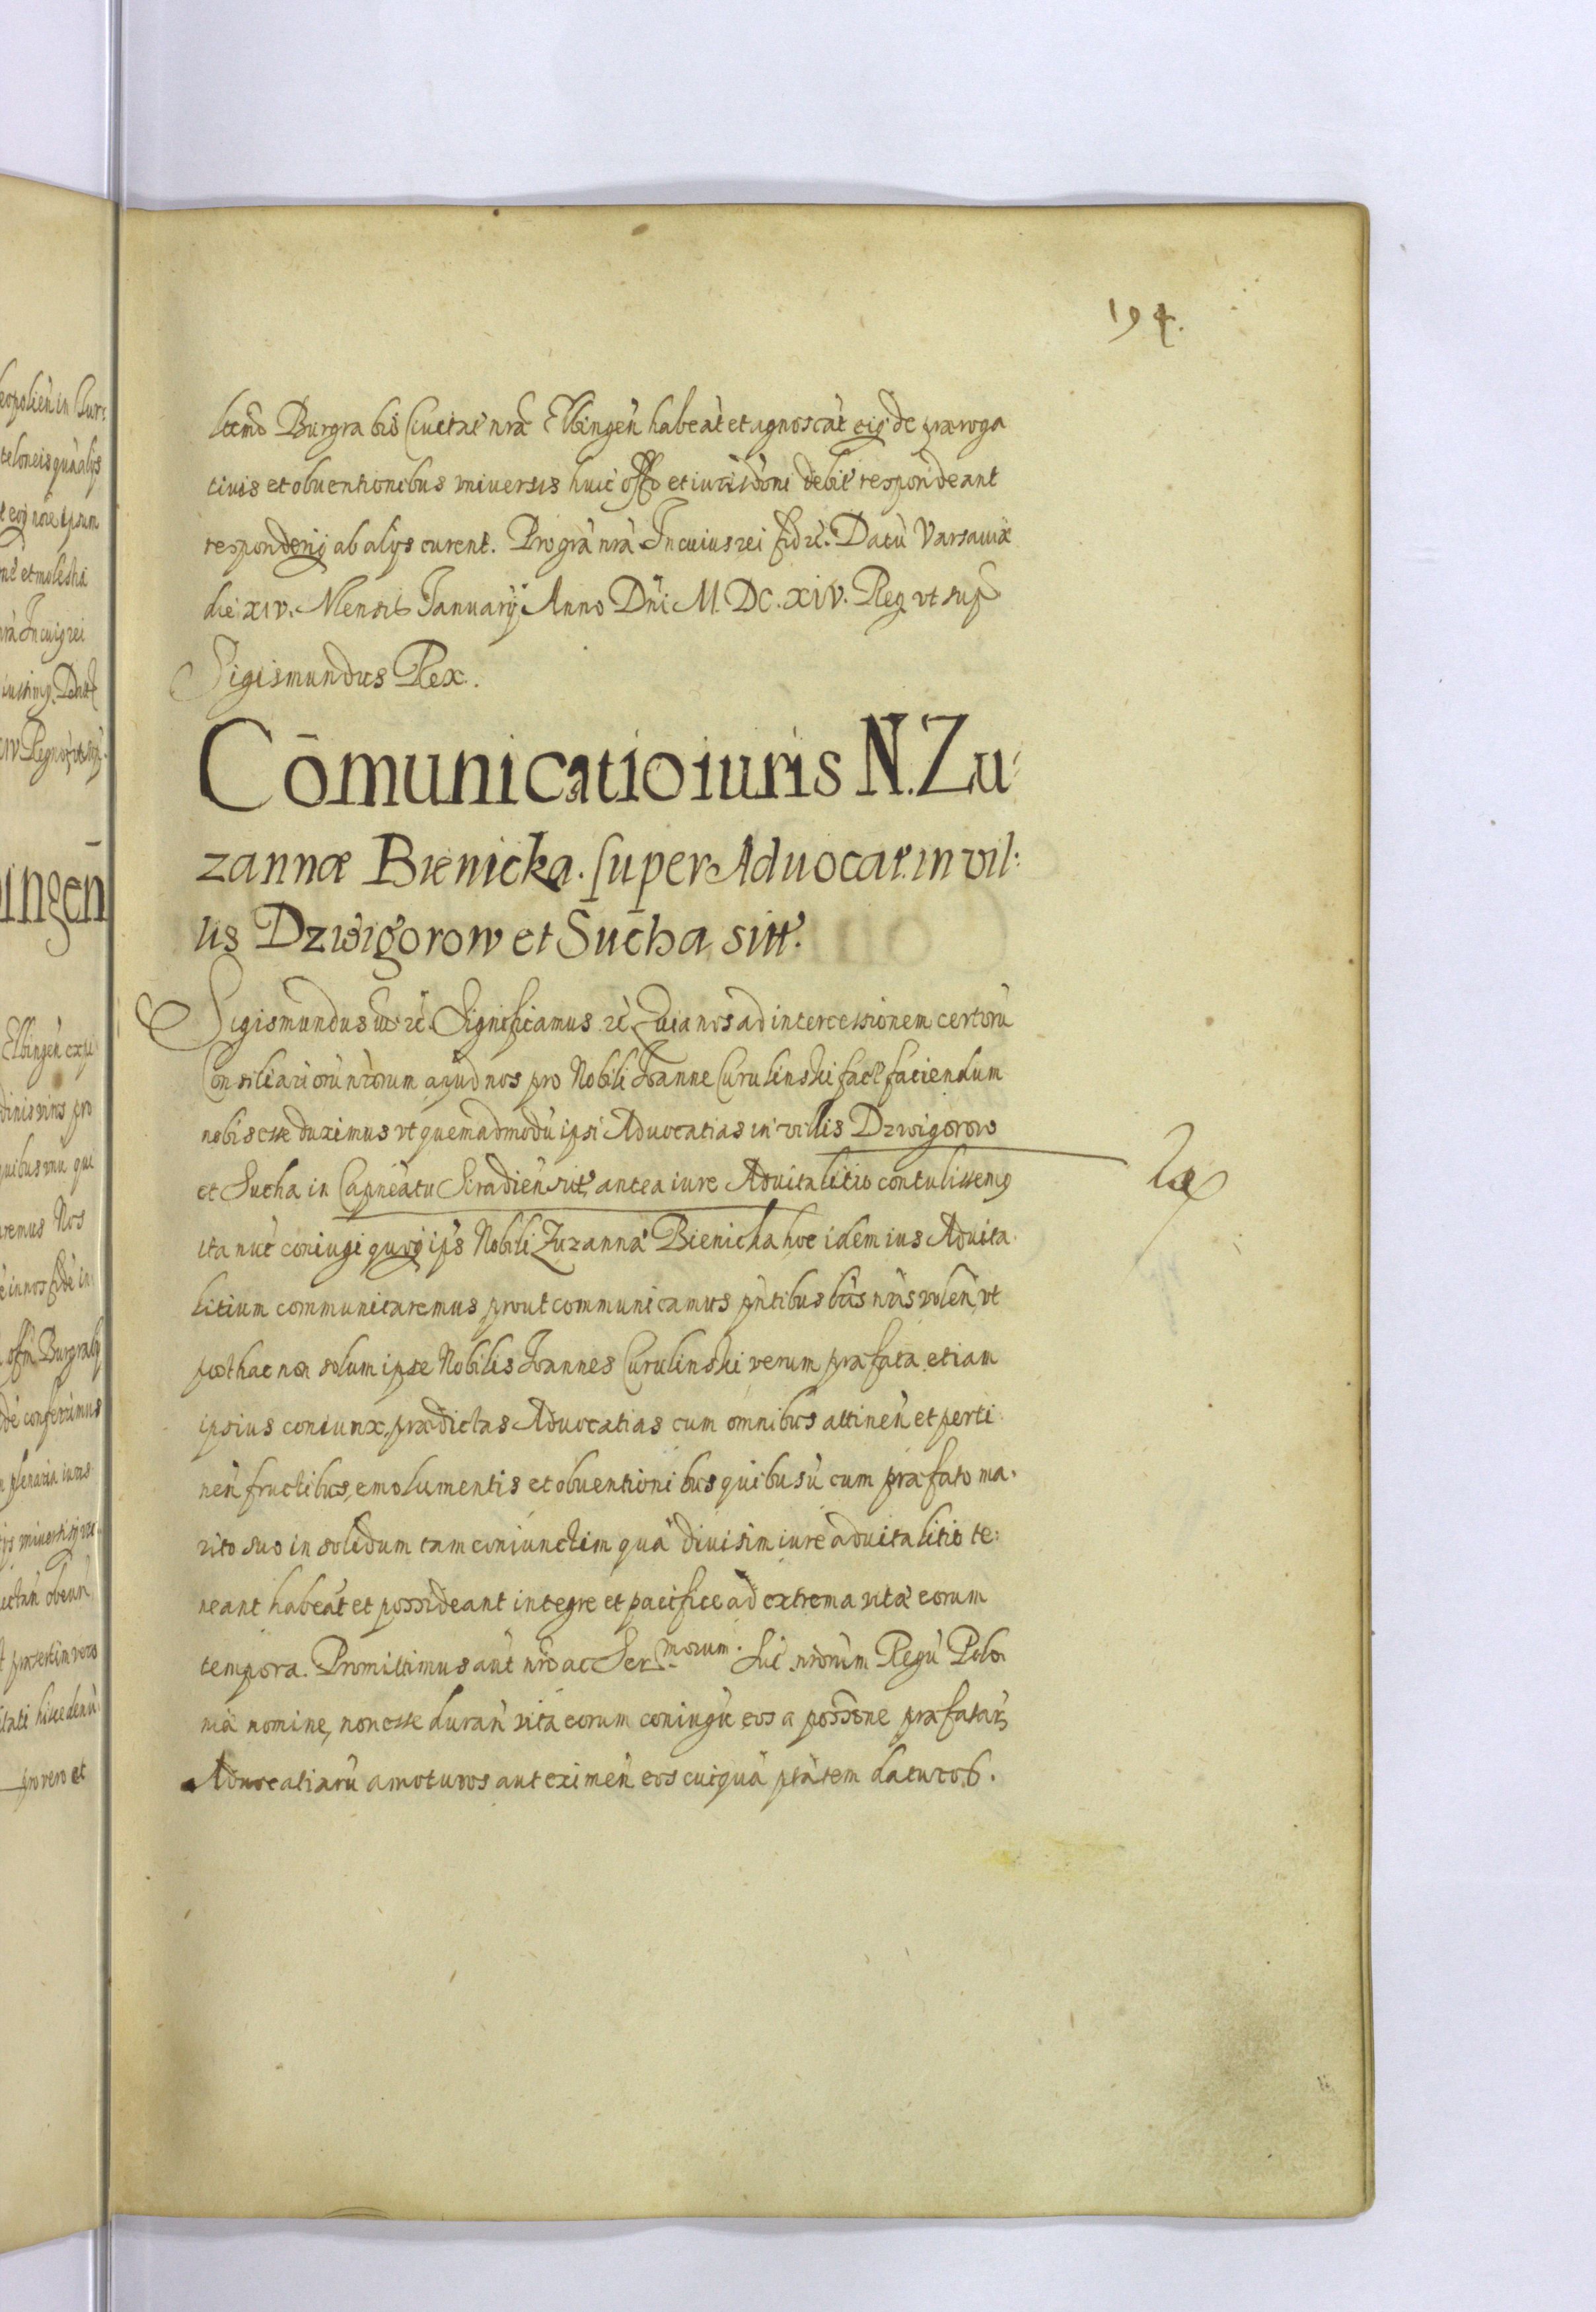 194.
Burgrabio Ciuitat nrã Elbingeñ habeãt et agnoscãt eiq́ de præroga
tiuis et obuentionibus vniuersis huic offo et iurisdoni debit respondeant
responderiq́ ab alijs curent. Pro grã nrã In cuius rei fid rč. Datũ Varsauiæ
die XIV. Mensis Januarij Anno Dñi M.DC.XIV. Reg vt sup
Sigismundus Rex.
Cõmunicatio iuris N. Zu:
zannæ Bienicka. super Aduocat. in vil:
lis Dzwigorow et Sucha sitt.
Sigismundus ut rč. Significamus rč. Quia nos ad intercessionem certorũ
Consiliariorũ nrorum apud nos pro Nobili Joanne Curulinski fact faciendum
nobis esse duximus vt quemadmodũ ipsi Aduocatias in villis Dzwigorow
et Sucha in Capneatu Siradieñ sit antea iure Aduitalitio contulissemq
ita nũc coniugi quoq ips Nobili Zuzannæ Bienicka hoc idem ius Aduita
litium communicaremus prout communicamus pñtibus lris nris voleñ, vt
posthac non solum ipse Nobilis Joannes Curulinski verum præfata etiam
ipsius coniunx, prædictas Aduocatias cum omnibus attineñ et perti
neñ fructibus, emolumentis et obuentionibus quibusũ cum præfato ma.
rito suo in solidum tam coniunctim quã diuisim iure aduitalitio te:
neant habeãt et possideant integre et pacifice ad extrema vitæ eorum
tempora. Promittimus aut nro ac Ser.morum. Suc nrorum Regũ Polo
niæ nomine, non esse durañ vita eorum coniugũ eos a possone præfatar
Aduocatiarũ amoturos aut eximeñ eos cuiquã ptãtem daturos.